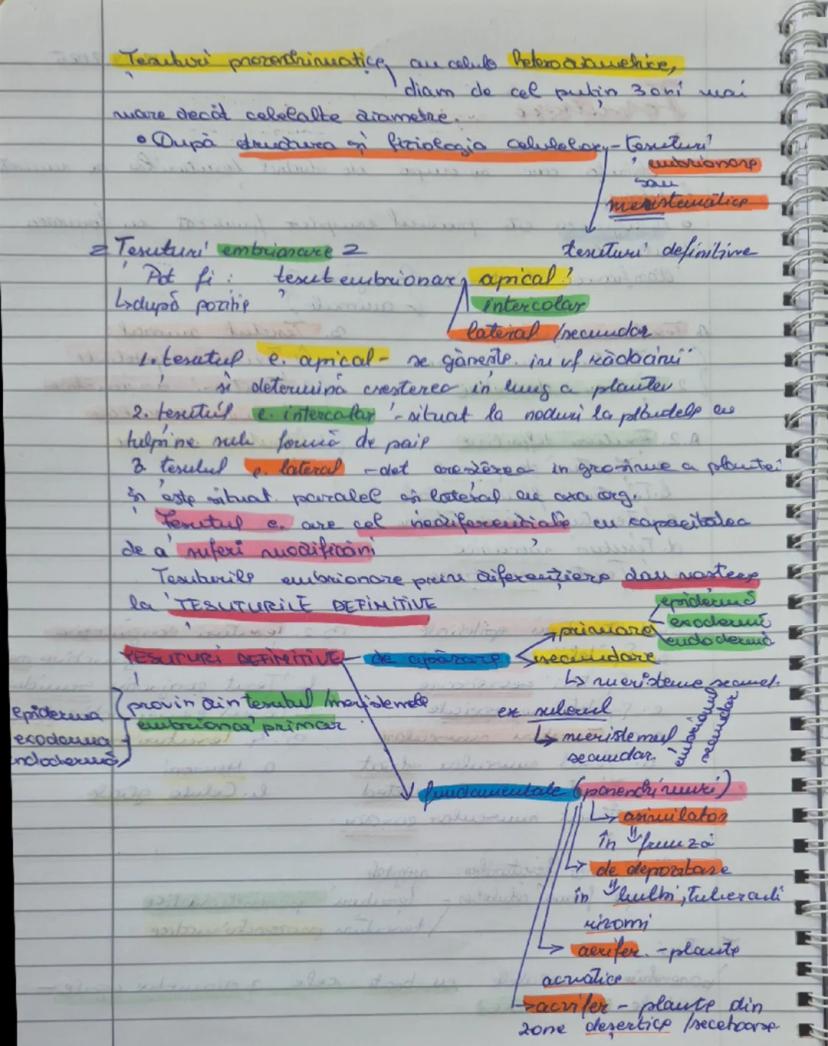 Țesuturi prozenchimatice, au celule heterodiametrice,
diam de cel puțin 3 ori mai
mare decât celelalte diametre.
• După structura și fiziologia celulelor - țesuturi
embrionare
sau
meristematice
țesuturi definitive
= Țesuturi embrionare =
Pot fi : țesut embrionar apical
↳ după poziție
intercalar
lateral /secundar
1. țesutul e. apical - se găsește în vf rădăcinii
și determină creșterea în lung a plantei
2. țesutul e. intercalar - situat la noduri la plantele cu
tulpine sub formă de pai
3. țesutul e. lateral - det creșterea în grosime a plantei
și este situat paralel și lateral cu axa org.
Țesutul e. are cel nediferențiate cu capacitatea
de a suferi modificări
Țesuturile embrionare prin diferențiere dau naștere
la ȚESUTURILE DEFINITIVE
epidermă
exodermă
endodermă
ȚESUTURI DEFINITIVE - de apărare
primare
secundare
↳ meristeme secund.
provin din țesutul /meristemele
embrionar primar
epiderma
exoderma
endodermă
ex suberul
↳ meristemul
secundar
embrionul
secundar
fundamentale (parenchimuri)
↳ asimilator
în frunză
↳ de depozitare
în bulbi, tuberculi
rizomi
→ aerifer - plante
acvatice
→ acvifer - plante din
zone deșertice /secetoase